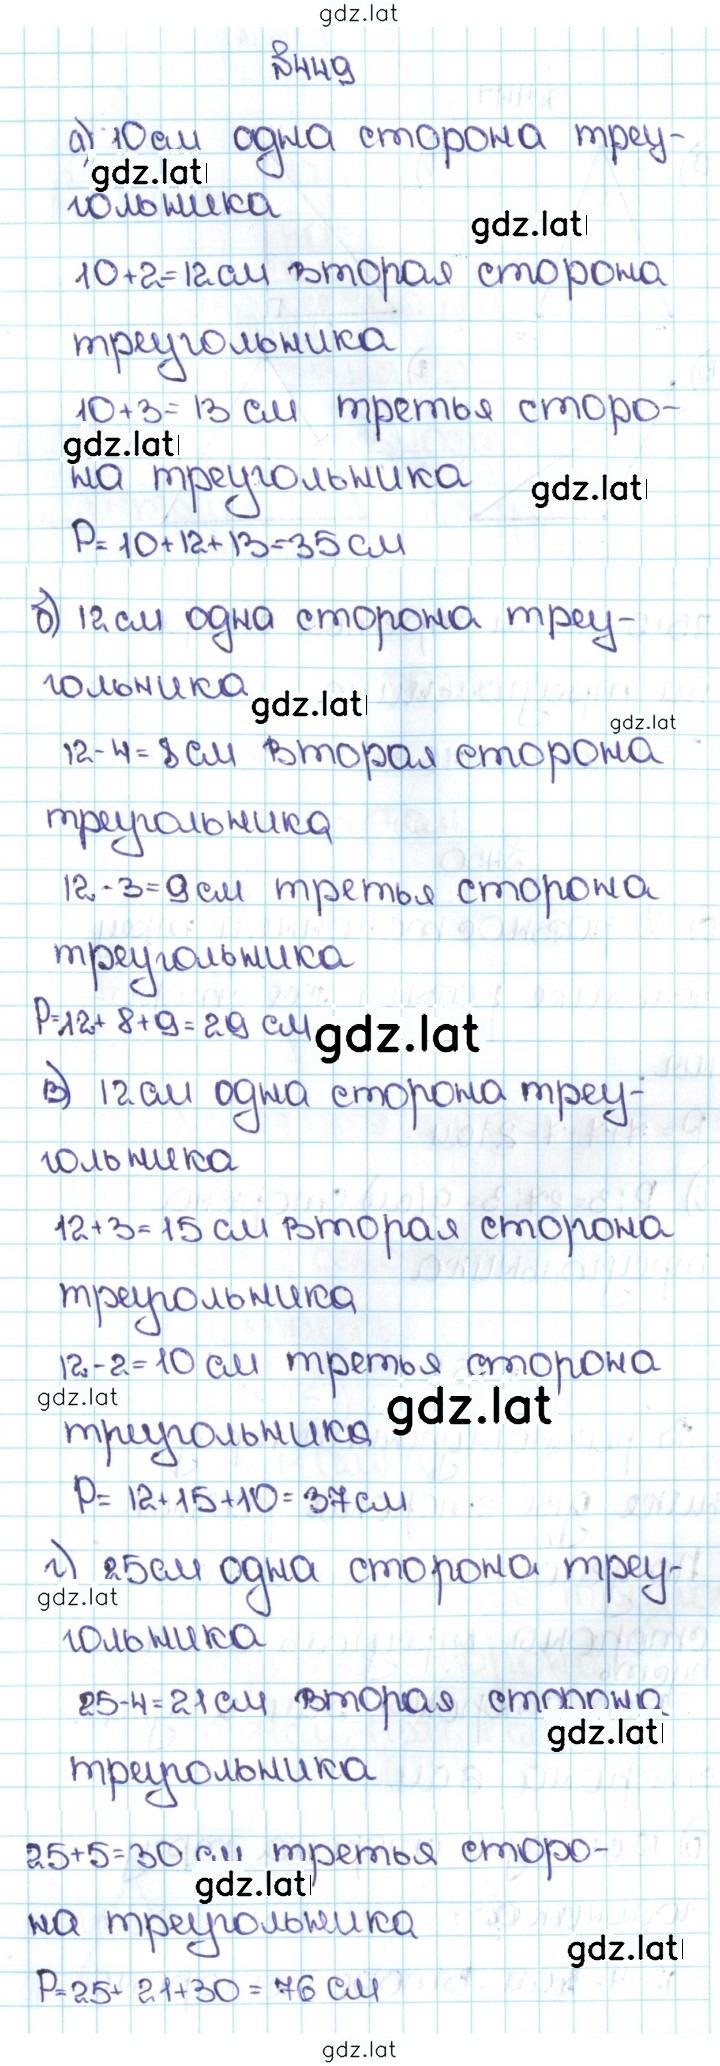 gdz.lat
№449
а) 10см одна сторона треу-
gdz.lat
гольника
gdz.lat
10+2=12см вторая сторона
треугольника
10+3=13 см третья сторо-
gdz.lat
на треугольника
gdz.lat
P=10+12+13=35 см
б) 12см одна сторона треу-
гольника
gdz.lat
gdz.lat
12-4=8 см вторая сторона
треугольника
12-3=9см третья сторона
треугольника
P=12+8+9=29 см
gdz.lat
в) 12см одна сторона треу-
гольника
12+3=15 см вторая сторона
треугольника
12-2=10 см третья сторона
gdz.lat
gdz.lat
треугольника
P=12+15+10=37см
г) 25см одна сторона треу-
gdz.lat
гольника
25-4=21см вторая сторона
gdz.lat
треугольника
25+5=30 см третья сторо-
gdz.lat
на треугольника
gdz.lat
P=25+21+30=76 см
gdz.lat